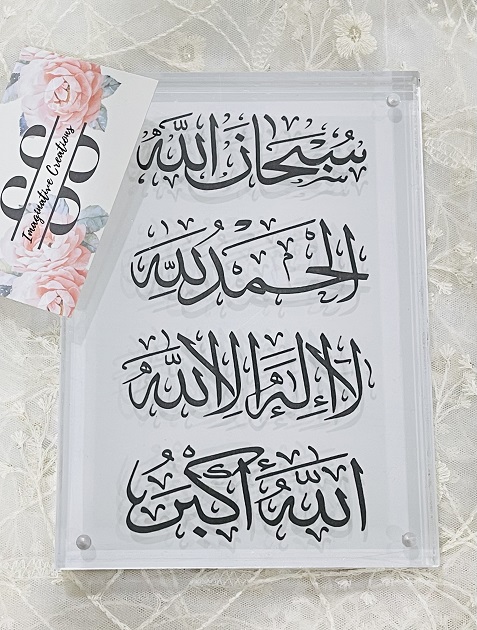 سُبْحَانَ اللّٰه
الْحَمْدُ لِلّٰهِ
لَا إِلٰهَ إِلَّا اللّٰه
اللّٰهُ أَكْبَرُ
SS
Imaginative Creations